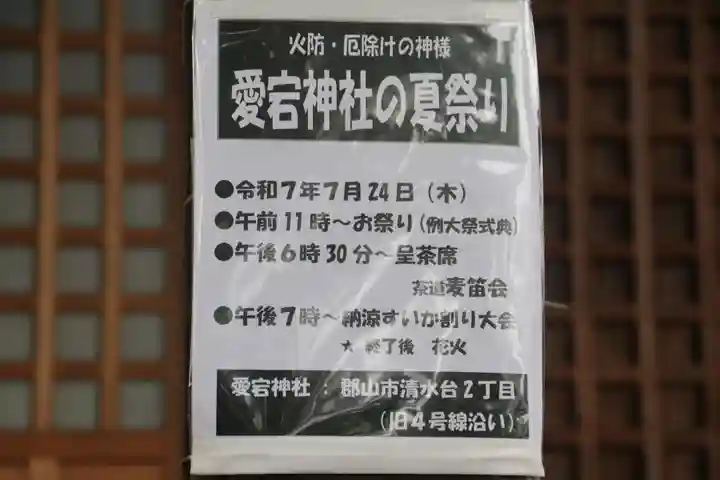 火防・厄除けの神様
愛宕神社の夏祭り
●令和7年7月24日(木)
●午前11時～お祭り(例大祭式典)
●午後6時30分～呈茶席
茶道麦笛会
●午後7時～納涼すいか割り大会
終了後 花火
愛宕神社 : 郡山市清水台2丁目
(旧4号線沿い)